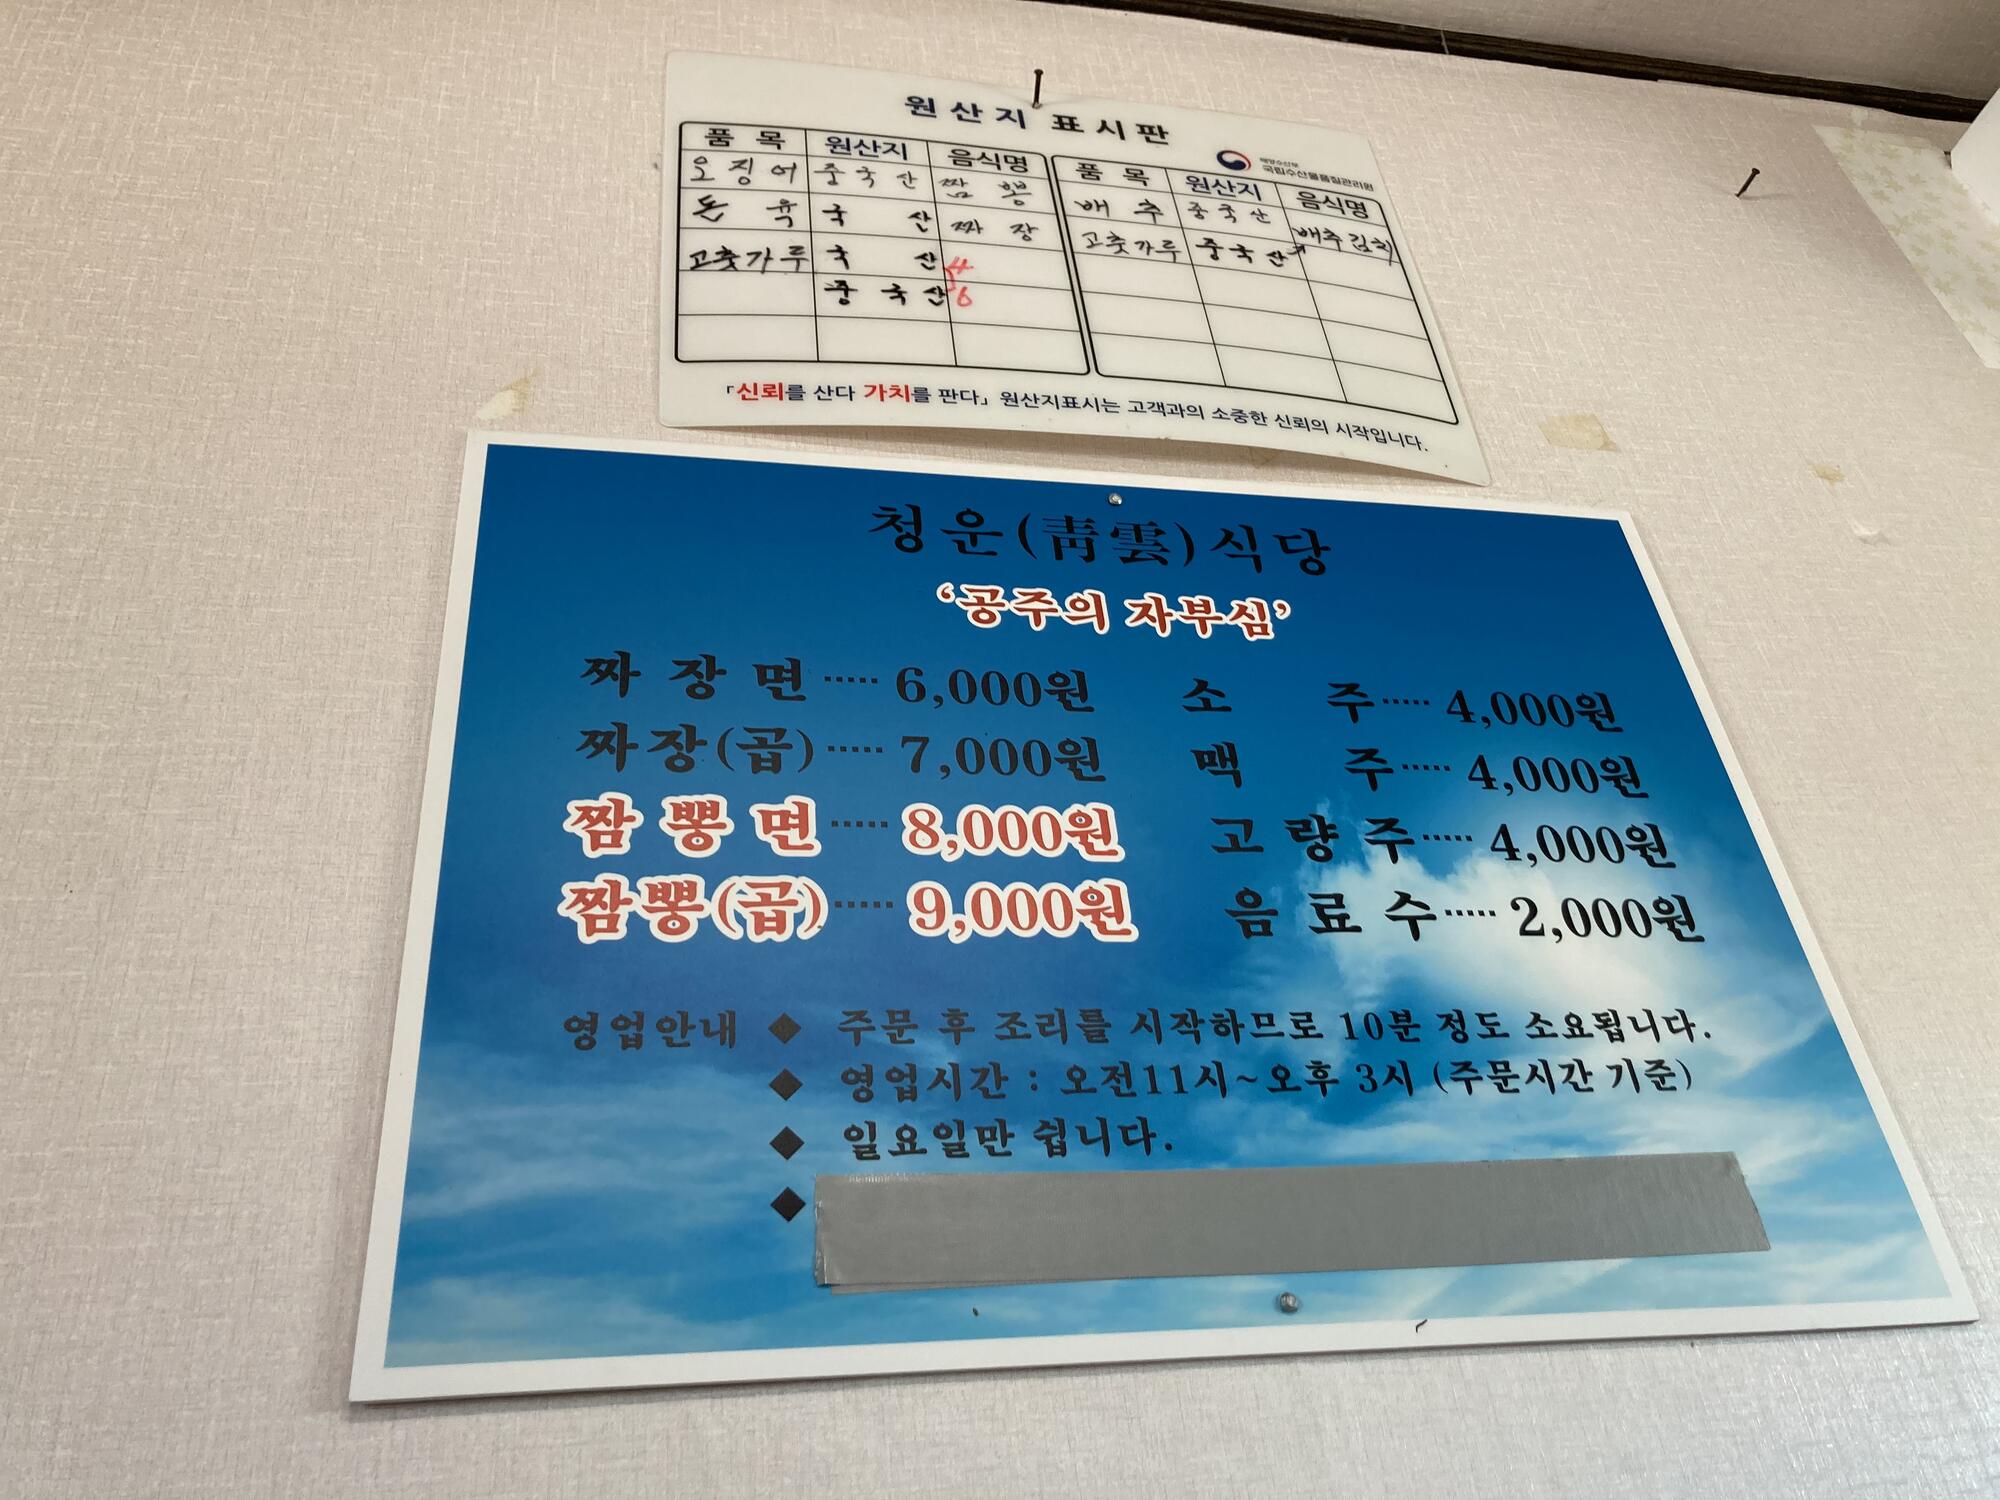 원산지 표시판
해양수산부
국립수산물품질관리원
품목 원산지 음식명
오징어 중국산 짬뽕
돈육 국산 짜장
고춧가루 국산 4
중국산 6
품목 원산지 음식명
배추 중국산 배추김치
고춧가루 중국산
「신뢰를 산다 가치를 판다」 원산지표시는 고객과의 소중한 신뢰의 시작입니다.
청운(靑雲)식당
‘공주의 자부심’
짜장면 ····· 6,000원
짜장(곱) ····· 7,000원
짬뽕면 ····· 8,000원
짬뽕(곱) ····· 9,000원
소주 ····· 4,000원
맥주 ····· 4,000원
고량주 ····· 4,000원
음료수 ····· 2,000원
영업안내 ◆ 주문 후 조리를 시작하므로 10분 정도 소요됩니다.
◆ 영업시간 : 오전11시~오후 3시 (주문시간 기준)
◆ 일요일만 쉽니다.
◆